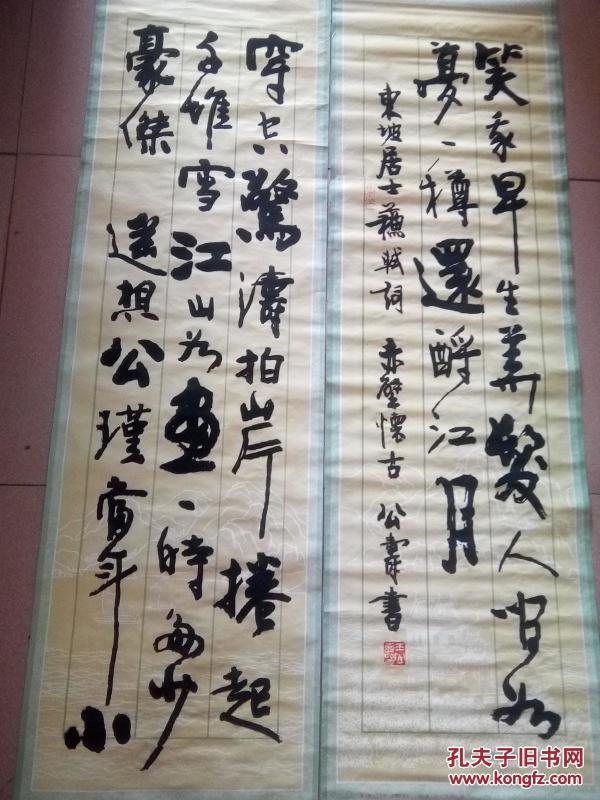 穿空驚濤拍岸捲起
千堆雪江山如畫一時多少
豪傑遙想公瑾當年小
笑我早生華髮人間如
夢一樽還酹江月
東坡居士蘇軾詞 赤壁懷古 公壽書
孔夫子旧书网
www.kongfz.com